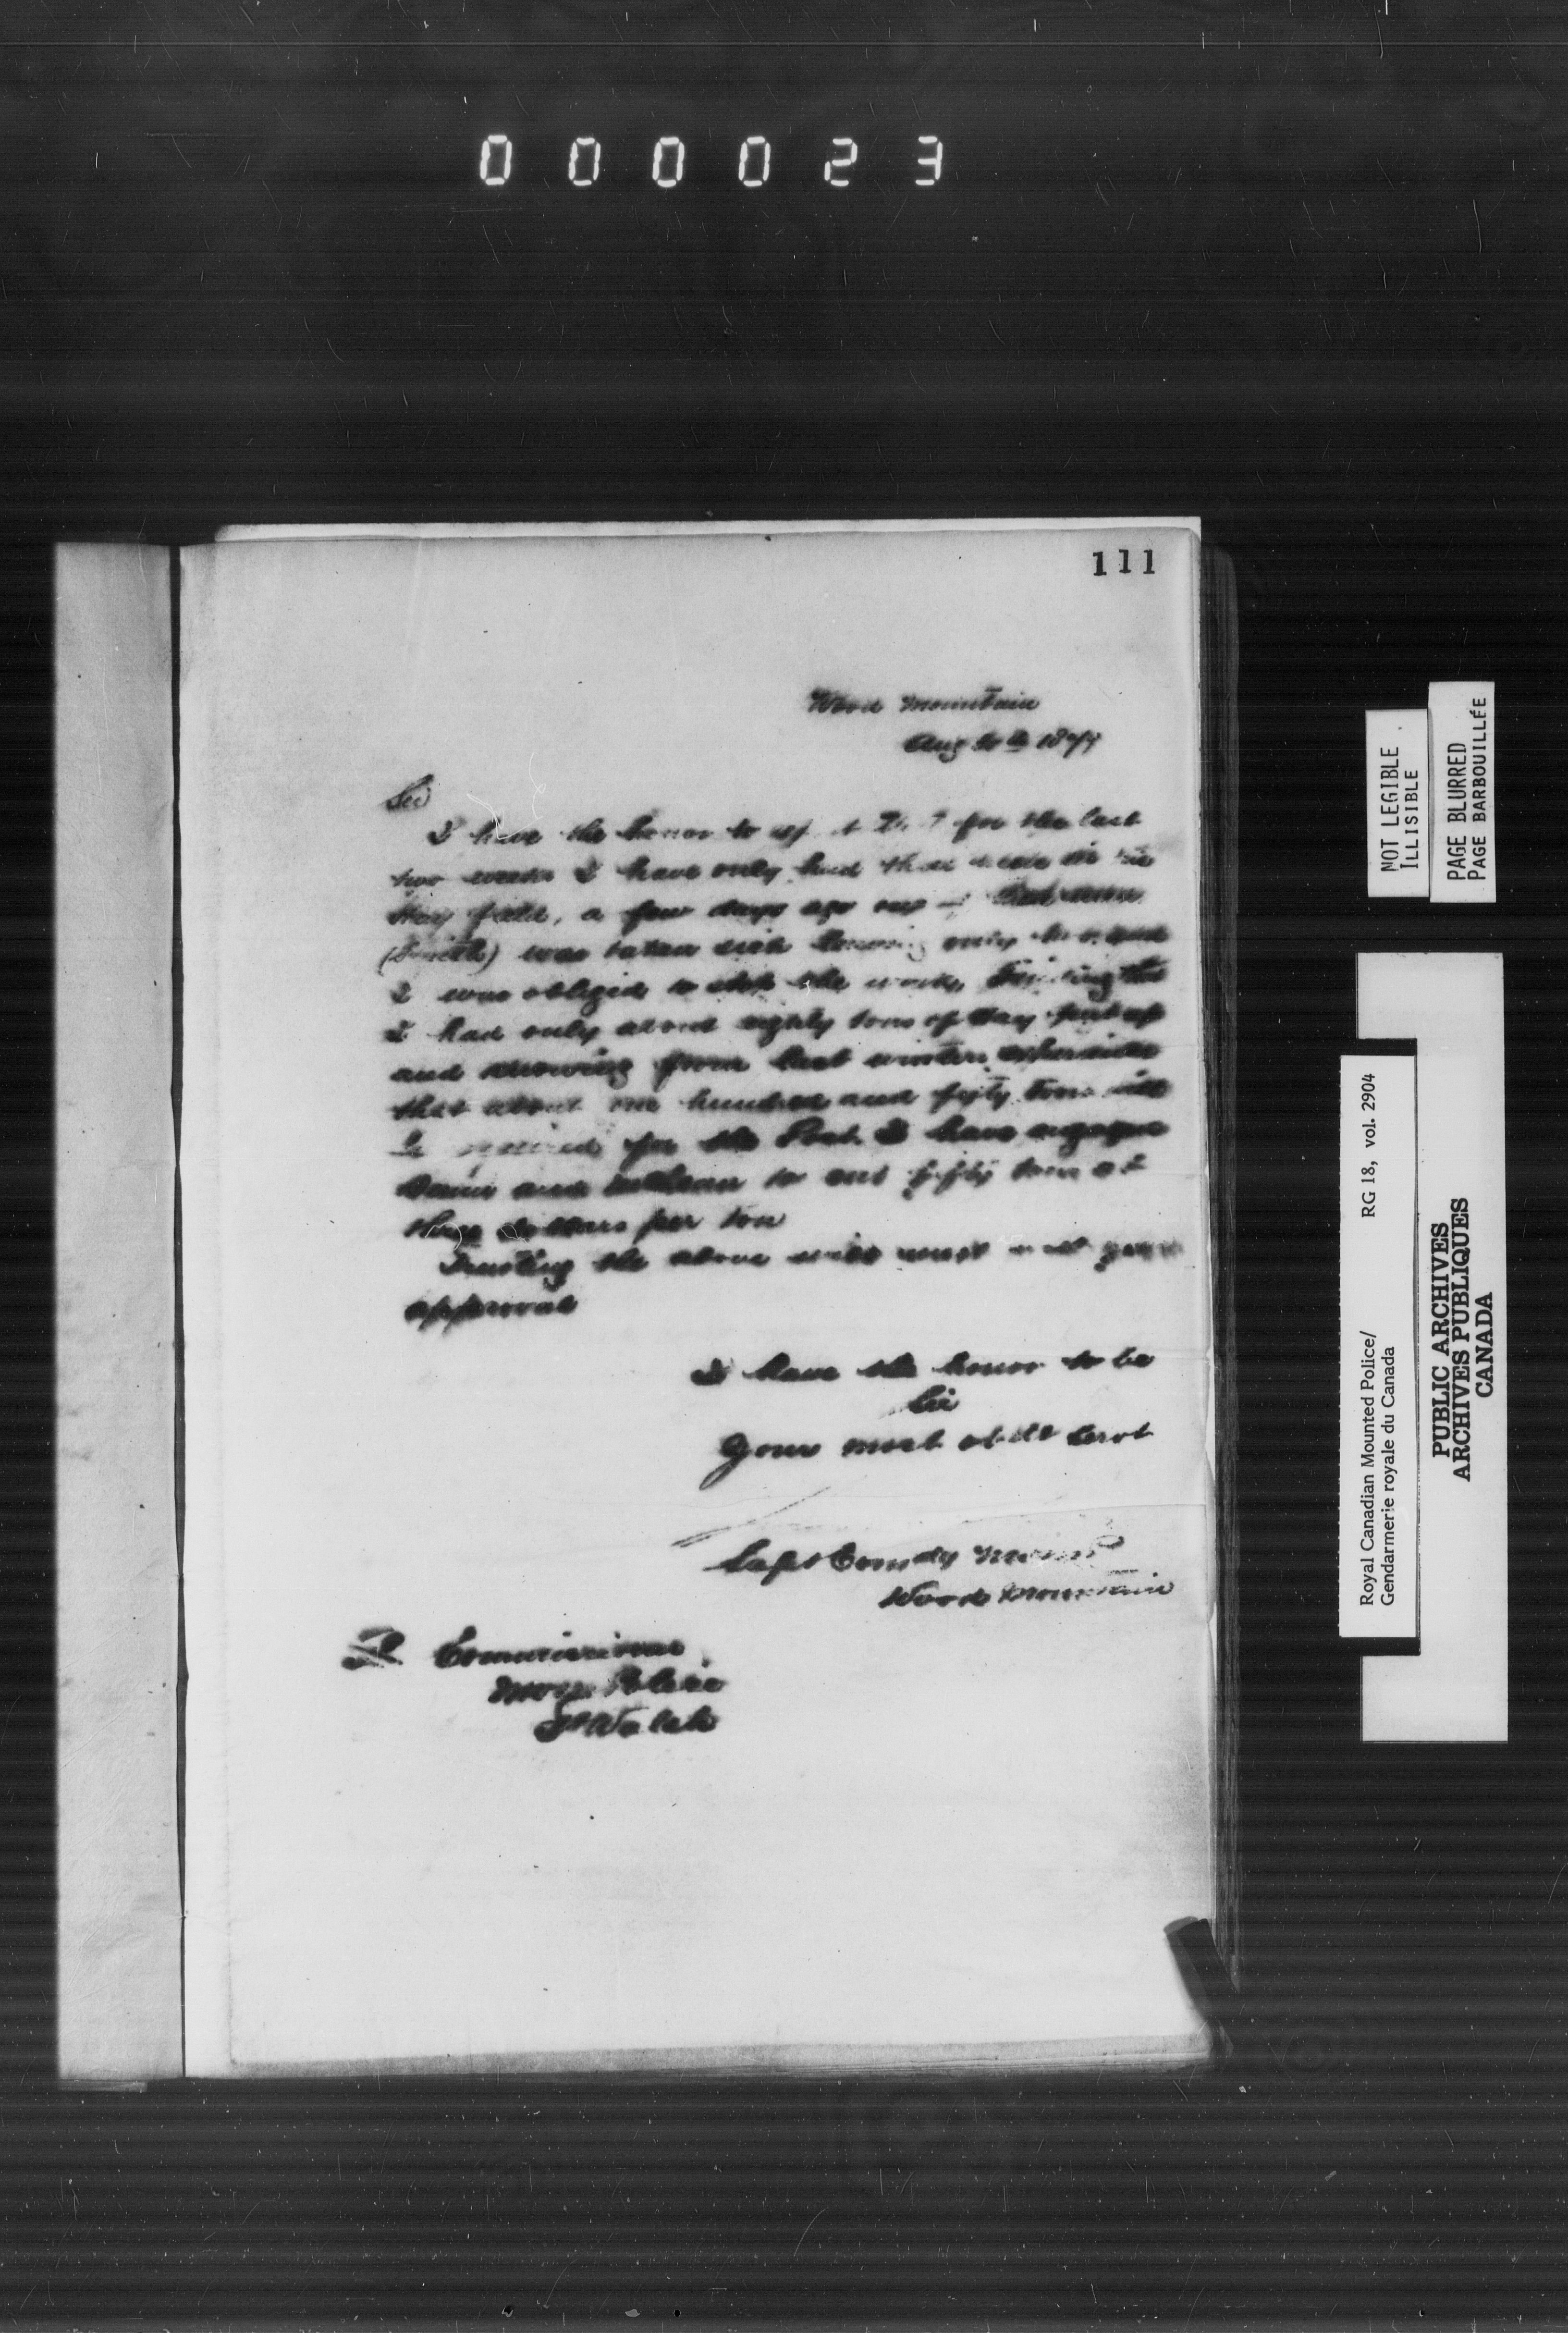 000023
111
Wood Mountain
Aug 1879
Sir
I have the honor to for the last
two weeks I have only had three in the
Hay field, a few days ago one of
(Smith) was taken sick leaving only two and
I was obliged to stop the work. Finding that
I had only about eighty tons of Hay put up
and knowing from last winters experience
that about one hundred and fifty tons will
be required for the Post. I have engaged
and to cut fifty tons at
three dollars per ton
Trusting the above will meet your
approval
I have the honor to be
Sir
Your most obdt Servt
Capt Comdg
Wood Mountain
The Commissioner
Police
Ft Walsh
NOT LEGIBLE
ILLISIBLE
PAGE BLURRED
PAGE BARBOUILLÉE
Royal Canadian Mounted Police/ RG 18, vol. 2904
Gendarmerie royale du Canada
PUBLIC ARCHIVES
ARCHIVES PUBLIQUES
CANADA